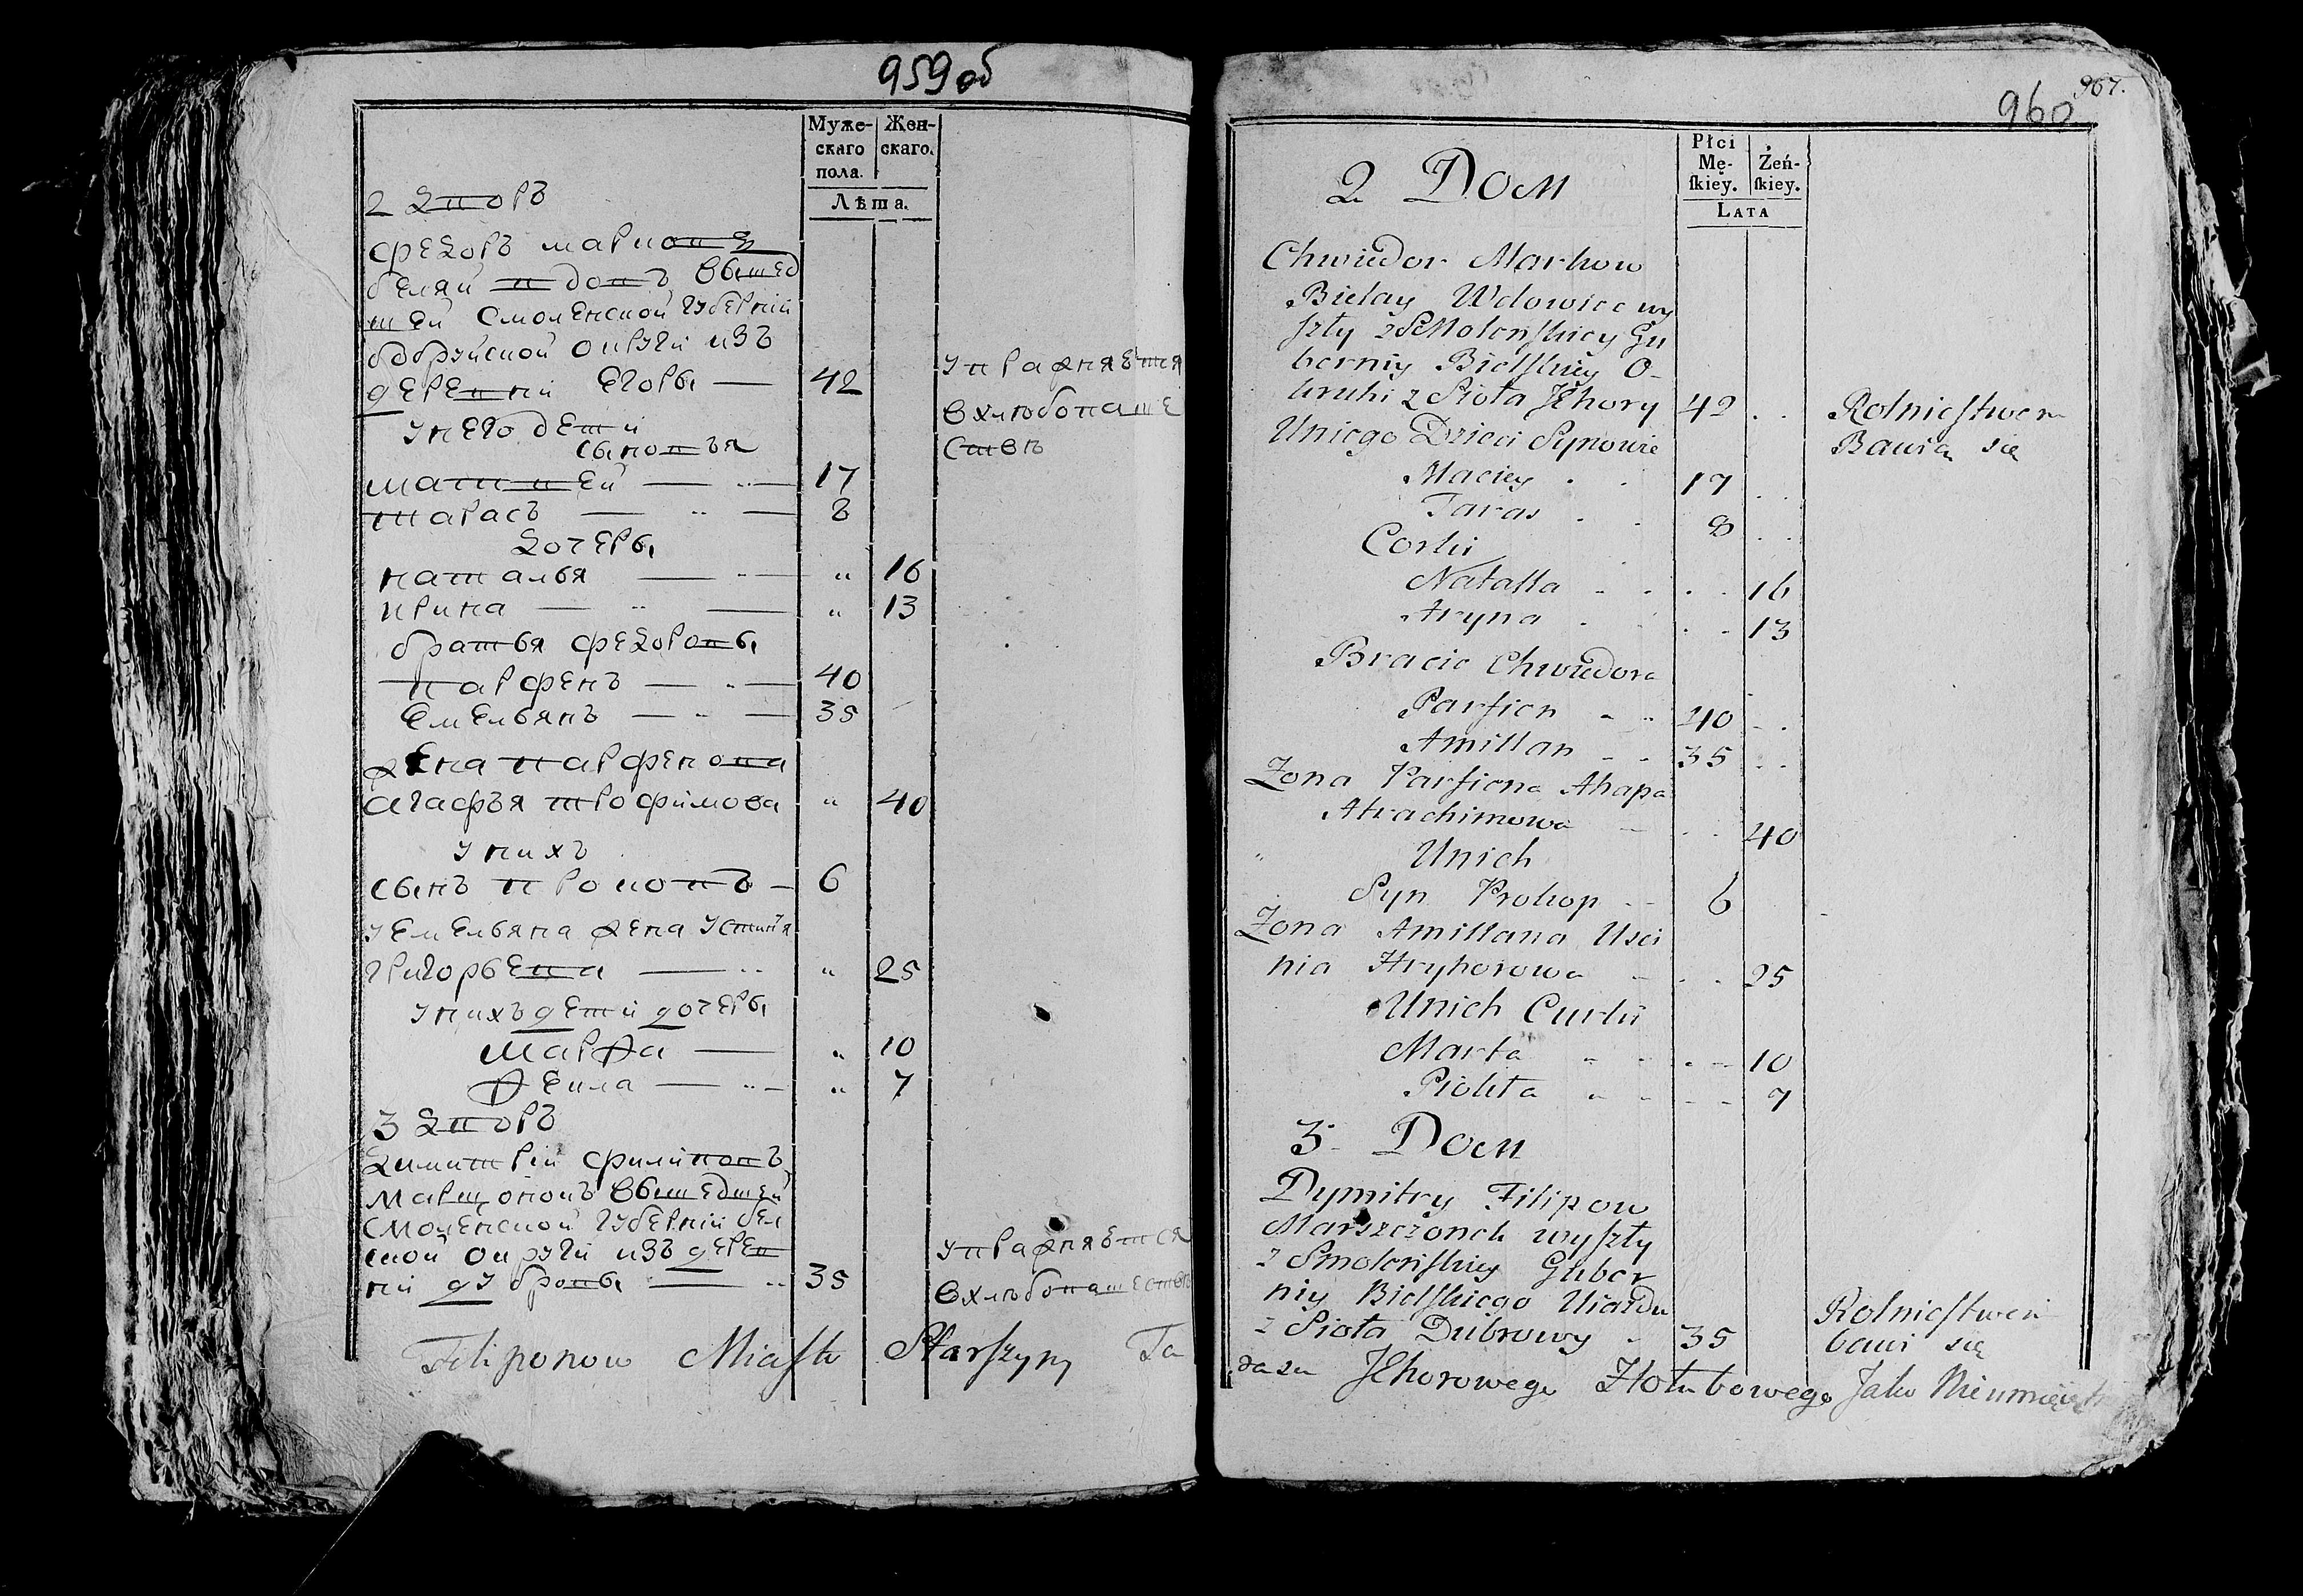 959 об
Муже-
скаго
пола.
Жен-
скаго.
Лѣта.
2 Дворъ
Федоръ Марковъ
беляй вдовъ вышед
шей Смоленской губерніи
бобруйской округи изъ
деревни Егоры — 42
упражняется
в хлѣбопаше
ствѣ
у него дети
сыновья
Матвей — 17
Тарасъ — 8
дочеры
Наталья — „ 16
Ирина — „ 13
братья Федоровы
Парфенъ — 40
Емельянъ — 35
жена Парфенова
Агафья Трофимова „ 40
у нихъ
сынъ Прокопъ — 6
у Емельяна жена Устинья
Григорьевна — „ 25
у нихъ дети дочеры
Марфа — „ 10
Фекла — „ 7
3 Дворъ
Димитрій Филиповъ
Марщонокъ вышедшей
Смоленской губерніи бел
ской округи изъ дерев
ни дубровы — 35
упражняется
в хлѣбопашествѣ
Filiponow Miasto Starszyny Ta
967.
960
Płci
Mę-
skiey.
Żeń-
skiey.
LATA
2 Dom
Chwiedor Markow
Bielay Wdowiec wy
szły z Smoleńskiey Gu
bernij Bielskiey O-
kruhi z Sioła Jehory 42 . .
Rolnictwem
Bawią się
Uniego Dzieci Synowie
Maciey . . 17 . .
Taras . . 8 . .
Corki
Natalla . . . . 16
Aryna . . . 13
Bracia Chwiedora
Parfien . . 40 . .
Amillan . . 35 . .
Zona Parfiena Ahapa
Atrachimowa . . . 40
Unich
Syn Prokop . . 6
Zona Amillana Usci
nia Hryhorowa . . . 25
Unich Curki
Marta . . . . 10
Piokta . . . . 7
3 Dom
Dymitry Filipow
Marszczonek wyszły
z Smoleńskiey Guber
nij Bielskiego Uiazdu
z Sioła Dubrowy . 35
Rolnictwem
bawi się
dasza Jehorowego Hołubowego Jako Nieumieięt